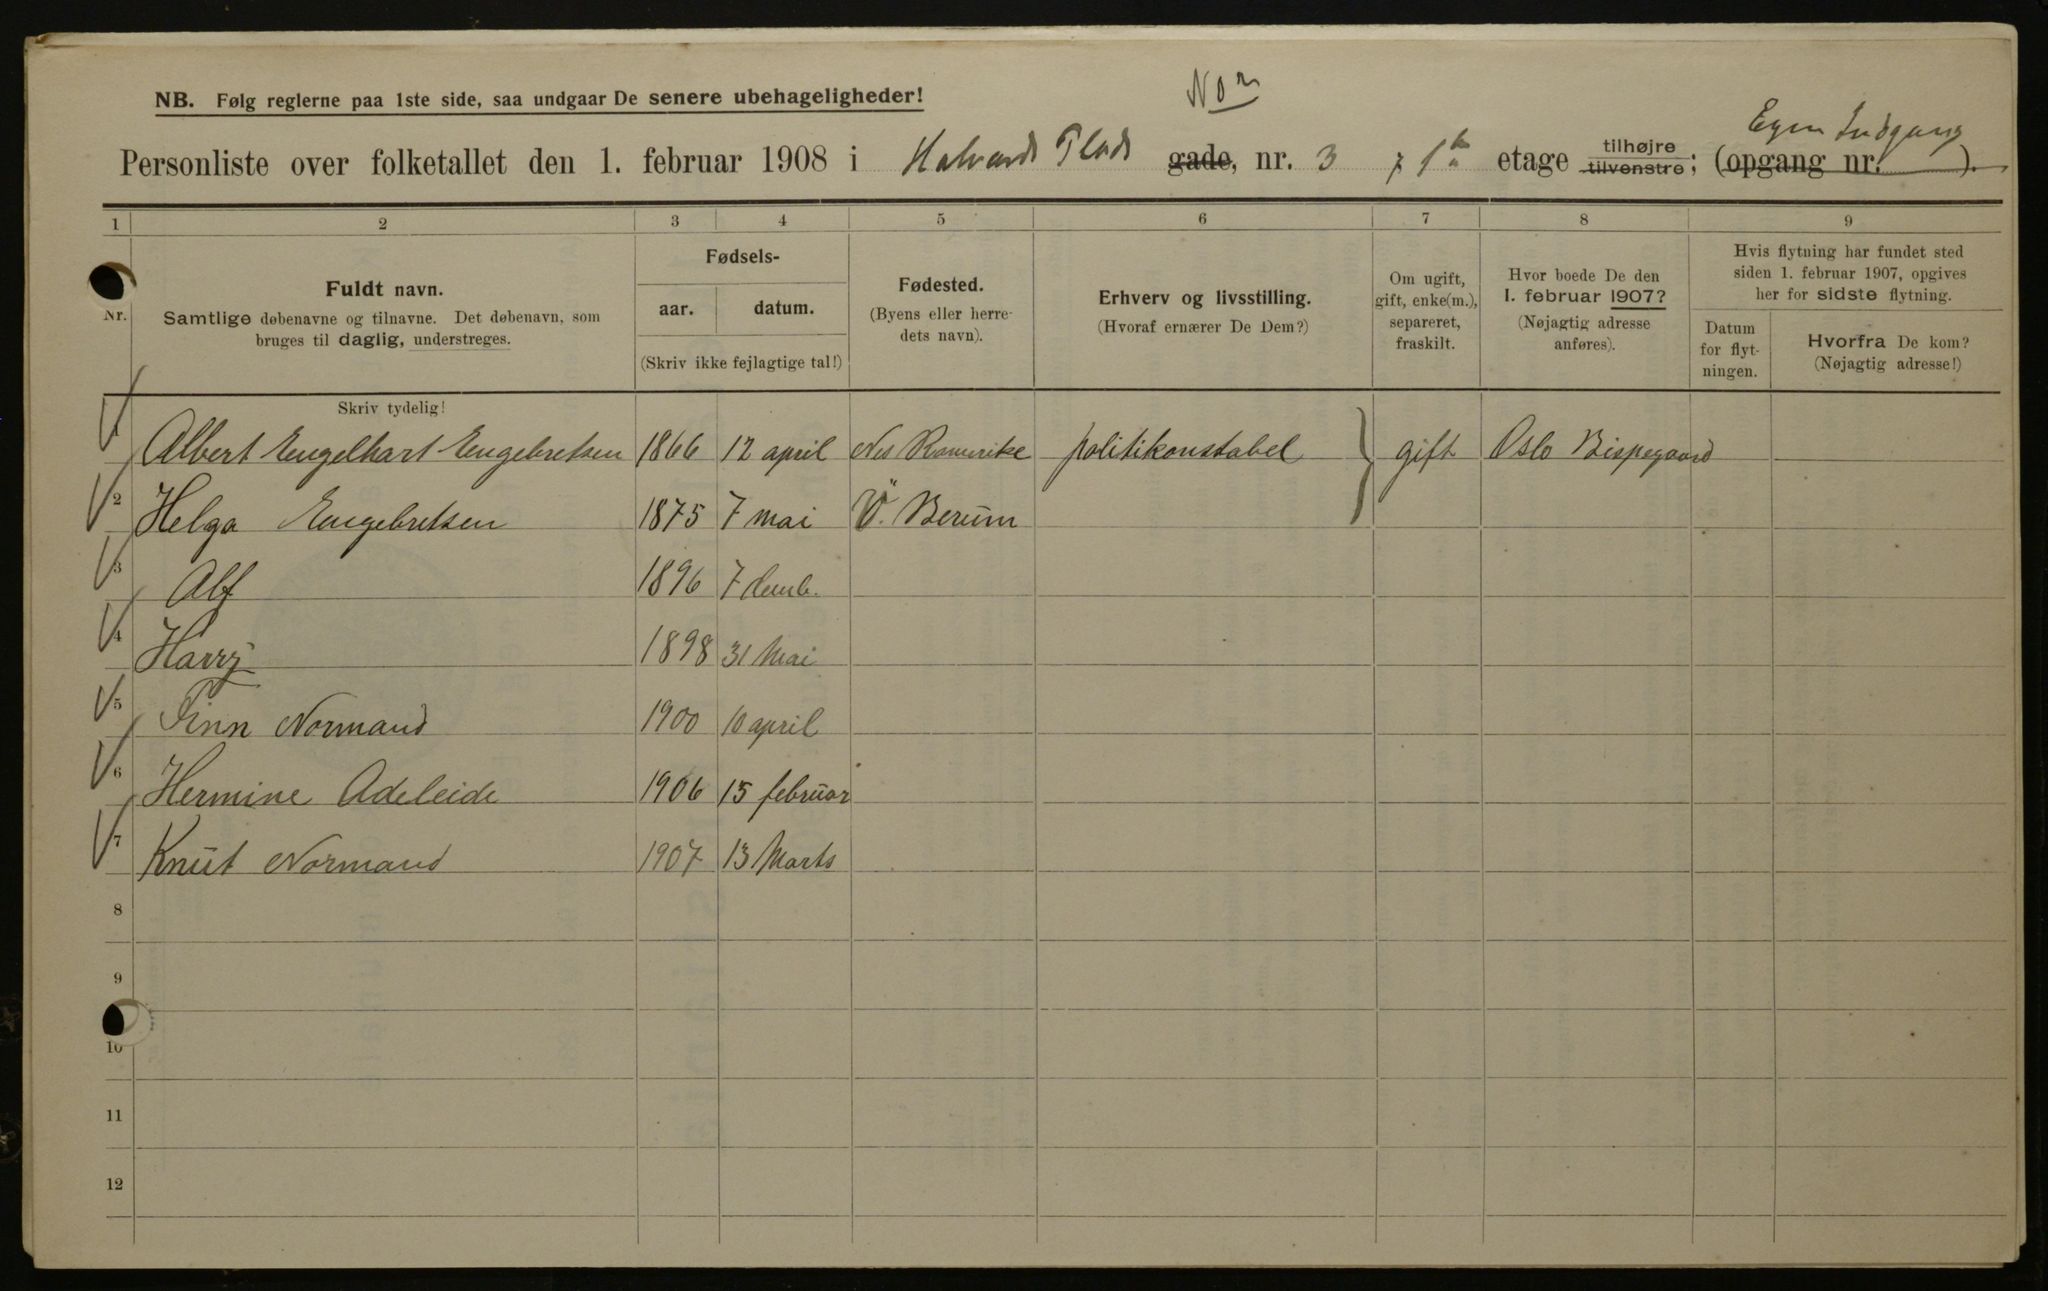 No 2
NB. Følg reglerne paa 1ste side, saa undgaar De senere ubehageligheder!
Egen Indgang
Personliste over folketallet den 1. februar 1908 i Halvards Plads gade, nr. 3 1ste etage tilhøjre tilvenstre; (opgang nr. ).
1 2 3 4 5 6 7 8 9
Nr.
Fuldt navn.
Samtlige døbenavne og tilnavne. Det døbenavn, som
bruges til daglig, understreges.
Skriv tydelig!
Fødsels-
aar. datum.
(Skriv ikke fejlagtige tal!)
Fødested.
(Byens eller herre-
dets navn).
Erhverv og livsstilling.
(Hvoraf ernærer De Dem?)
Om ugift,
gift, enke(m.),
separeret,
fraskilt.
Hvor boede De den
1. februar 1907?
(Nøjagtig adresse
anføres).
Hvis flytning har fundet sted
siden 1. februar 1907, opgives
her for sidste flytning.
Datum
for flyt-
ningen.
Hvorfra De kom?
(Nøjagtig adresse!)
1 Albert Engelhart Engebretsen 1866 12 april Nes Romerike politikonstabel gift Oslo Bispegaard
2 Helga Engebretsen 1875 7 mai V. Berum
3 Alf 1896 7 demb.
4 Harry 1898 31 Mai
5 Finn Normand 1900 10 april
6 Hermine Adeleide 1906 15 februar
7 Knut Normand 1907 13 Marts
8
9
10
11
12